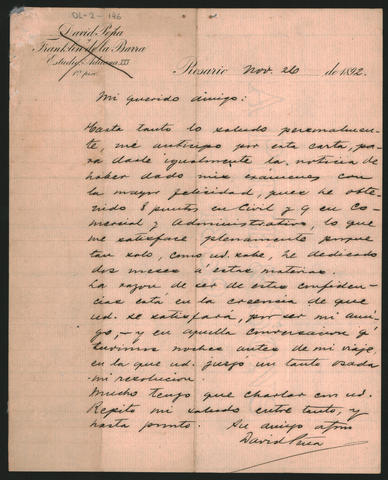 DL-2-146
David Peña
Franklin de la Barra
Estudy Aduana 111
1er piso
Rosario Nov. 26 de 1892.
Mi querido amigo:
Hasta tanto lo saludo personalmen-
te, me anticipo por esta carta, pa-
ra darle igualmente la noticia de
haber dado mis exámenes con
la mayor felicidad, pues he obte-
nido 8 puntos en Civil y 9 en Co-
mercial y Administrativo, lo que
me satisface plenamente porque
tan solo, como ud. sabe, he dedicado
dos meses á estas materias.
La razon de ser de estas confiden-
cias está en la creencia de que
ud. se satisfará, por ser mi ami-
go, - y en aquella conversacion q'
tuvimos noches antes de mi viaje,
en la que ud. juzgó un tanto osada
mi resolucion.
Mucho tengo que charlar con ud.
Repito mi saludo entre tanto, y
hasta pronto. Su amigo afmo
David Peña